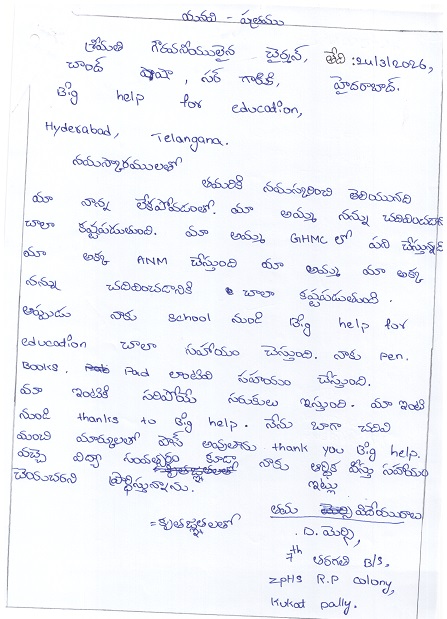 మనవి - పత్రము
శ్రీమతి గౌరవనీయులైన చైర్మన్, తేది :24/3/2026,
చాంద్ పాషా, సర్ గారికి, హైదరాబాద్.
Big help for education,
Hyderabad, Telangana.
నమస్కారములతో
తమరికి నమస్కరించి తెలియునది
మా నాన్న లేకపోవడంతో. మా అమ్మ నన్ను చదివించడా
చాలా కష్టపడుతుంది. మా అమ్మ GHMC లో పని చేస్తున్నది
మా అక్క ANM చేస్తుంది మా అమ్మ మా అక్క
నన్ను చదివించడానికి చాలా కష్టపడుతుంది.
అప్పుడు నాకు School నుండి Big help for
education చాలా సహాయం చెస్తుంది. నాకు pen.
Books. Pad లాంటివి సహాయం చేస్తుంది.
మా ఇంటికి సరిపోయే సరుకులు ఇస్తుంది. మా ఇంటి
నుండి thanks to Big help. నేను బాగా చదివి
మంచి మార్కులతో పాస్ అవుతాను thank you Big help.
వచ్చె విద్యా సంవత్సరం కూడా నాకు ఆర్థిక సహాయం
చేయుచరని ప్రార్థిస్తున్నాను. ఇట్లు
తమ విదేయురాలు
=కృతజ్ఞతలతో
D. మెర్సి,
7th తరగతి B/S,
ZPHS R.P colony,
Kukat pally.